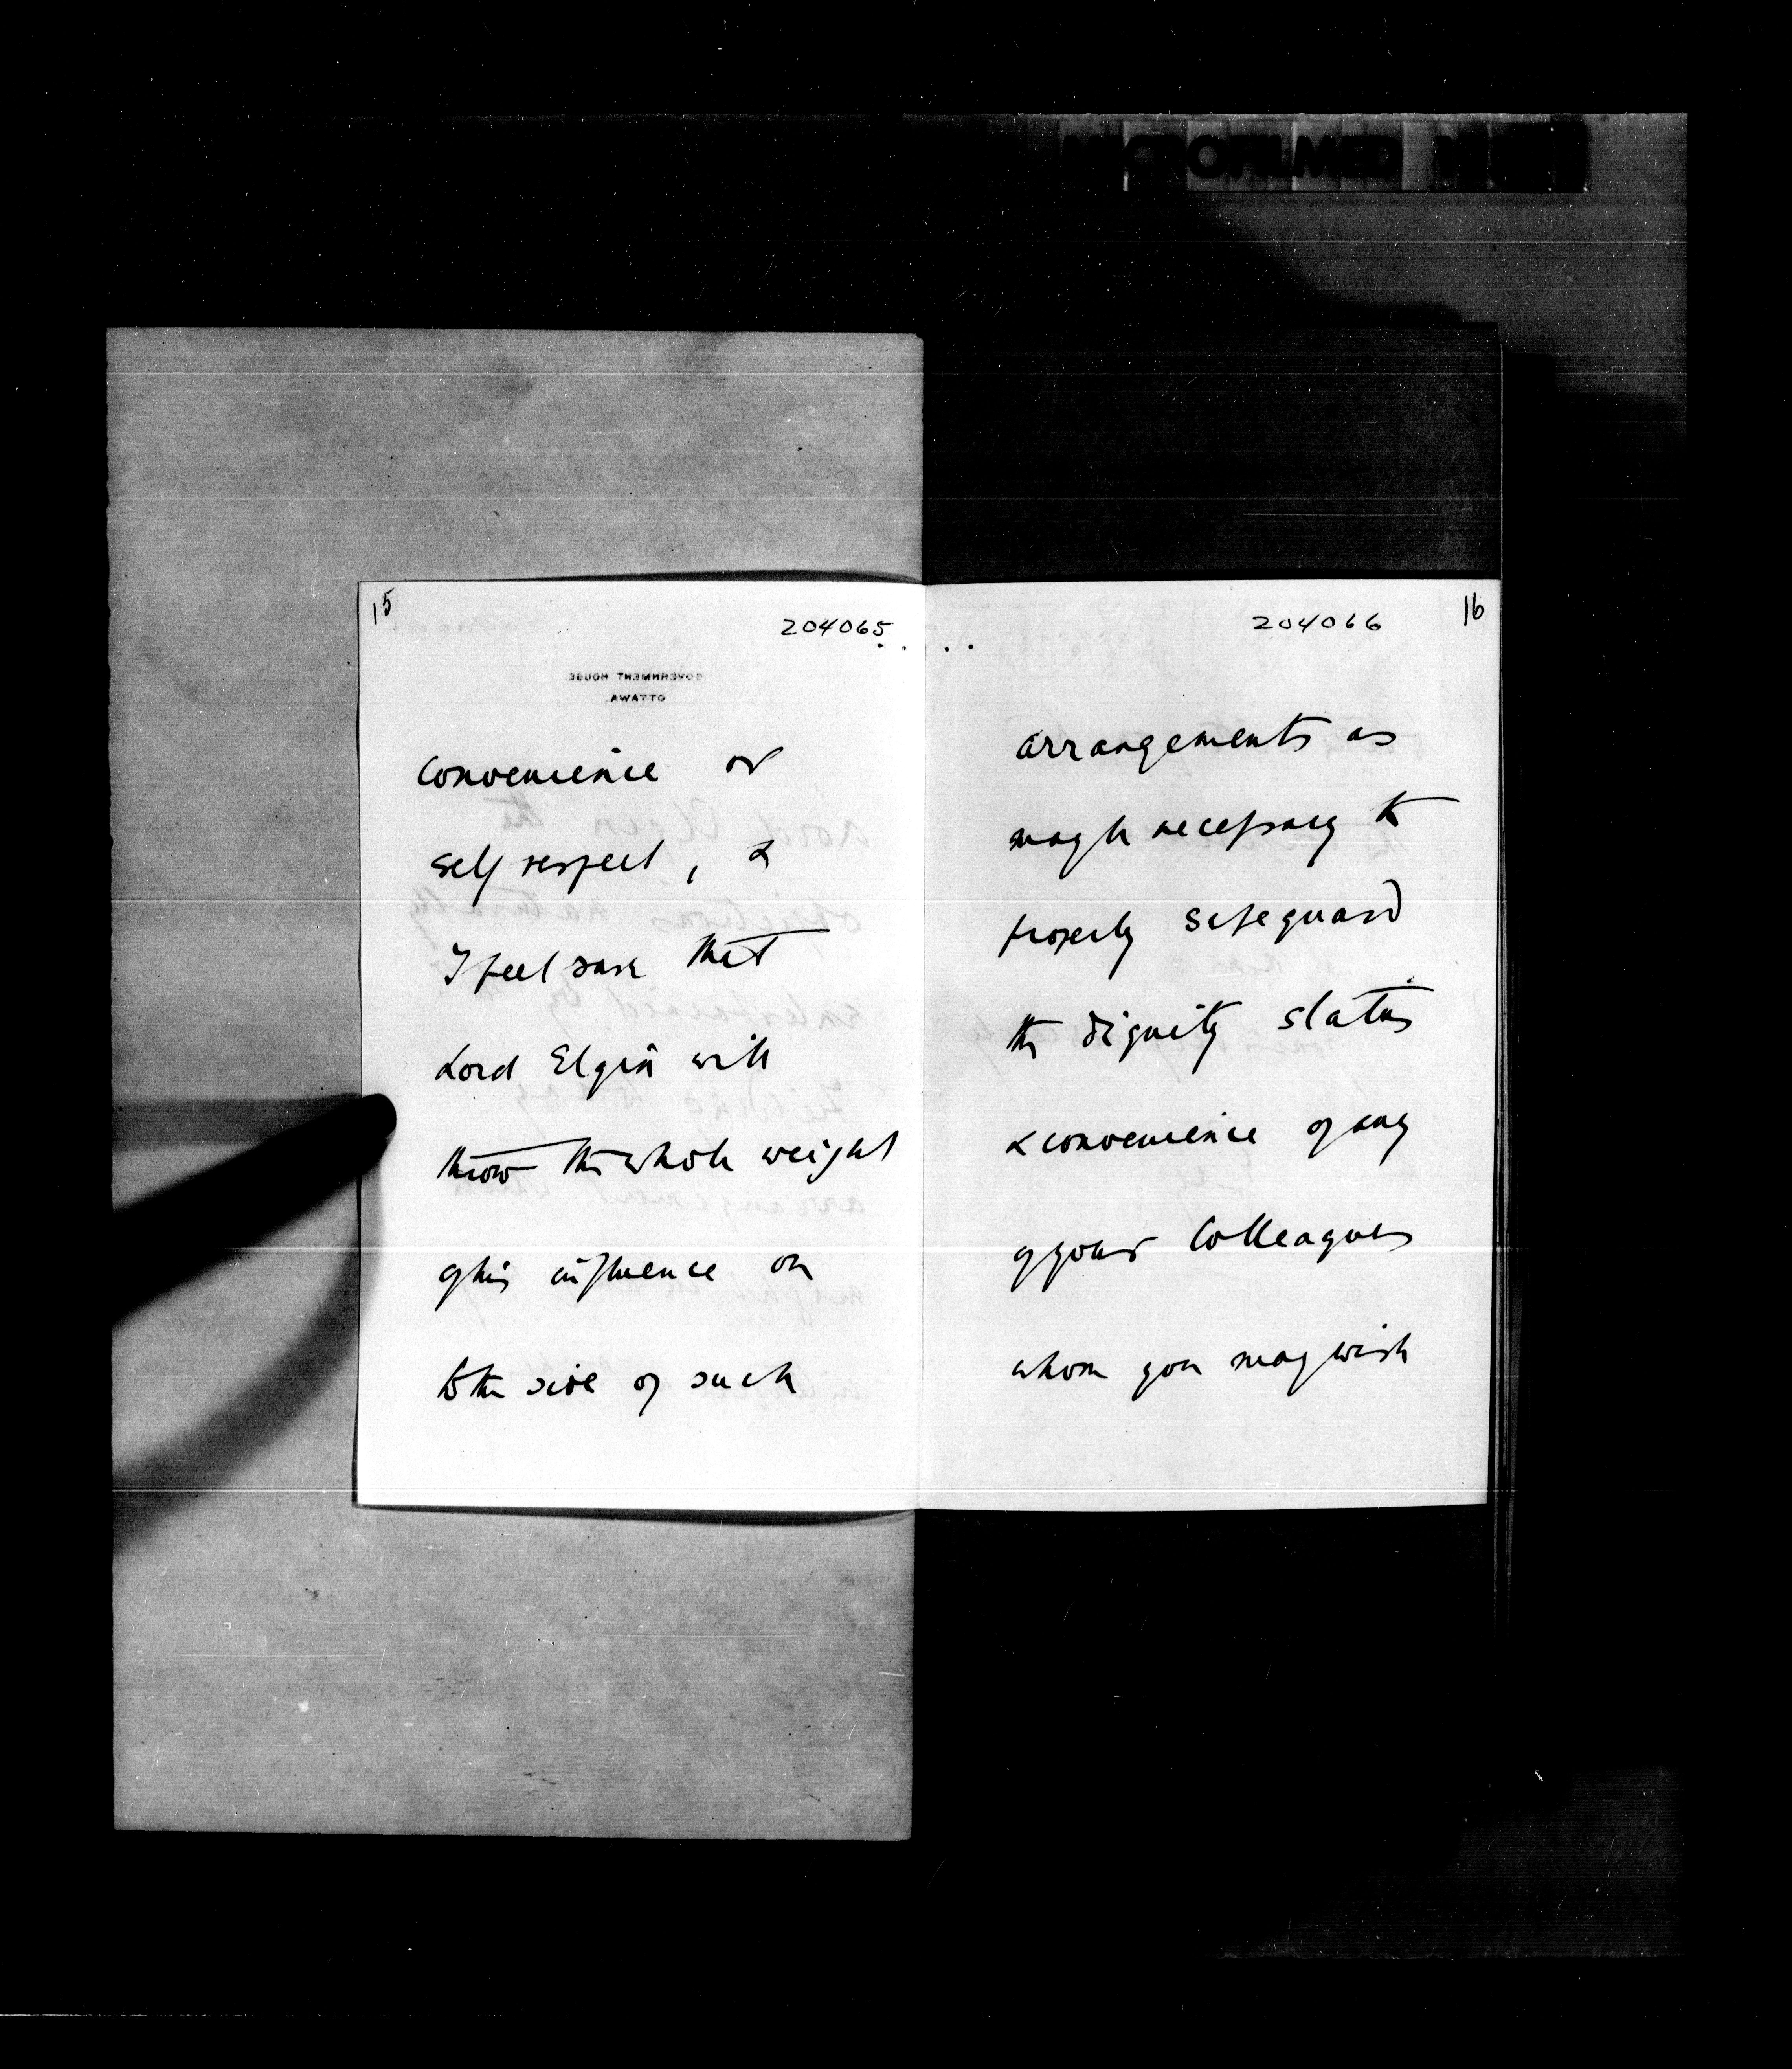 MICROFILMED
15
204065
GOVERNMENT HOUSE
OTTAWA
convenience or
self respect, &
I feel sure that
Lord Elgin will
throw the whole weight
of his influence on
to the side of such
204066
16
arrangements as
may be necessary to
properly safeguard
the dignity status
& convenience of any
of your Colleagues
whom you may wish